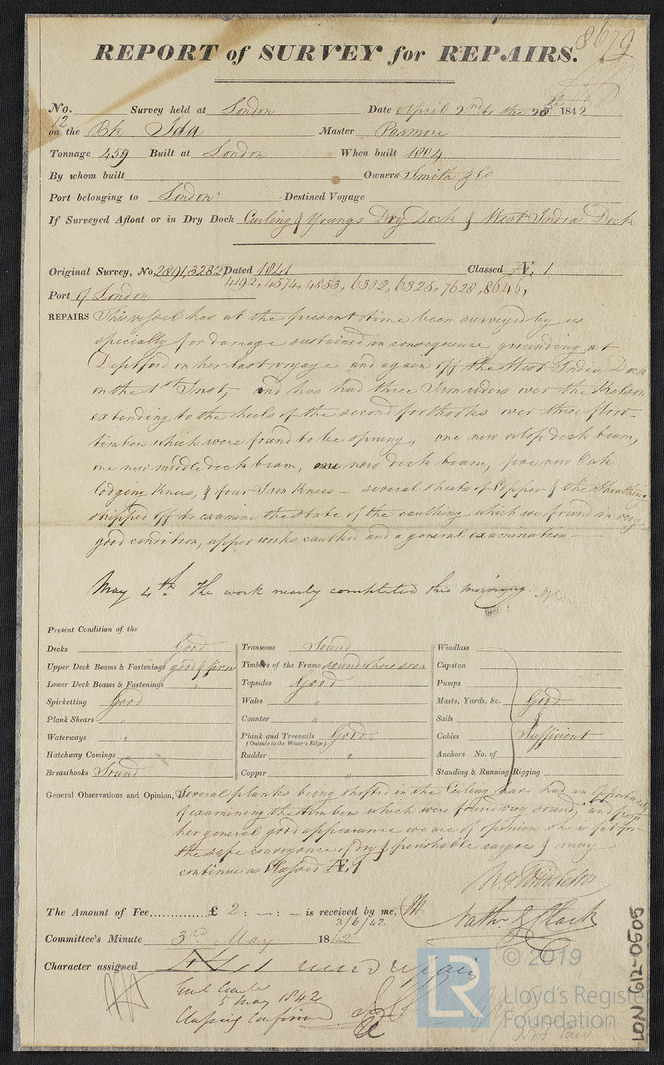 8679
REPORT of SURVEY for REPAIRS.
No. 12 Survey held at London Date April 2nd to the 1842
on the Bk. Ida Master Pasmore
Tonnage 459 Built at London When built 1804
By whom built Owners Smith & Co
Port belonging to London Destined Voyage
If Surveyed Afloat or in Dry Dock Curling & Youngs Dry Dock & West India Dock
Original Survey, No. 2891, 3282 Dated 1841 Classed Æ, 1
4192, 4574, 4853, 6332, 6325, 7628, 8646,
Port of London
REPAIRS This vessel has at the present time been surveyed by us
specially for damage sustained in consequence grounding at
Deptford on her last voyage and again off the West India Dock
on the 1st Inst, and has had three Iron riders over the Kelson
extending to the heels of the second futtocks over three floor
timbers which were found to be sprung, one new orlop deck beam,
one new middle deck beam, one new deck beam, five new Oak
lodging Knees, & four Iron Knees – several sheets of Copper & the Sheathing
stripped off to examine the state of the caulking which we found in very
good condition, upper works caulked and a general examination
May 4th. The work nearly completed this morning.
Present Condition of the
Decks Good
Upper Deck Beams & Fastenings good & firm
Lower Deck Beams & Fastenings
Spirketting Good
Plank Shears "
Waterways "
Hatchway Comings
Breasthooks Sound
Transoms Sound
Timbers of the Frame sound where seen
Topsides Good
Wales "
Counter "
Plank and Treenails Good
(Outside to the Water's Edge)
Rudder "
Copper "
Windlass
Capstan
Pumps
Masts, Yards, &c. Good
Sails
Cables Sufficient
Anchors No. of
Standing & Running Rigging
General Observations and Opinion, Several planks being shifted in the Ceiling has had an opportunity
of examining the timbers which were found very sound, and from
her general good appearance we are of opinion she is fit for
the safe conveyance of dry & perishable cargoes & may
continue as Classed Æ, 1
The Amount of Fee............ £ 2 : – : – is received by me,
3/6/42
Nathl. Clark
Committee's Minute 3rd May 1842
Character assigned
5 May 1842
Classing Confirmed
© 2019
LR
Lloyd's Register
Foundation
LON 612-0605